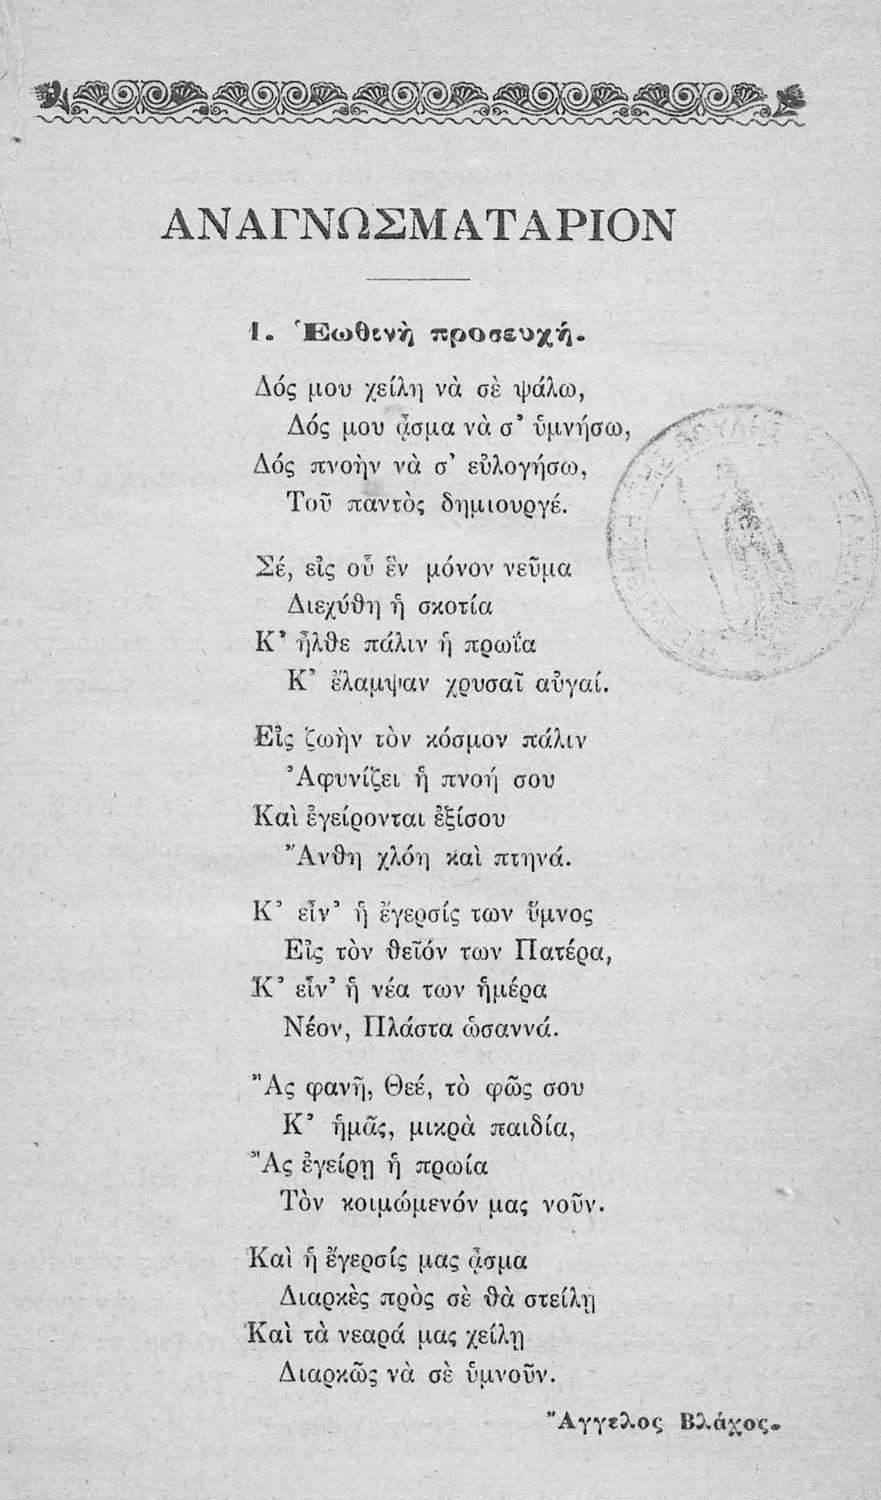 ΑΝΑΓΝΩΣΜΑΤΑΡΙΟΝ
1. Ἑωθινὴ προσευχή.
Δός μου χείλη νὰ σὲ ψάλω,
Δός μου ᾆσμα νὰ σ' ὑμνήσω,
Δός πνοὴν νὰ σ' εὐλογήσω,
Τοῦ παντὸς δημιουργέ.
Σέ, εἰς οὗ ἓν μόνον νεῦμα
Διεχύθη ἡ σκοτία
Κ' ἦλθε πάλιν ἡ πρωΐα
Κ' ἔλαμψαν χρυσαῖ αὐγαί.
Εἰς ζωὴν τὸν κόσμον πάλιν
Ἀφυνίζει ἡ πνοή σου
Καὶ ἐγείρονται ἐξίσου
Ἄνθη χλόη καὶ πτηνά.
Κ' εἶν' ἡ ἔγερσίς των ὕμνος
Εἰς τὸν θεῖόν των Πατέρα,
Κ' εἶν' ἡ νέα των ἡμέρα
Νέον, Πλάστα ὡσαννά.
Ἂς φανῇ, Θεέ, τὸ φῶς σου
Κ' ἡμᾶς, μικρὰ παιδία,
Ἂς ἐγείρῃ ἡ πρωία
Τὸν κοιμώμενόν μας νοῦν.
Καὶ ἡ ἔγερσίς μας ᾆσμα
Διαρκὲς πρὸς σὲ θὰ στείλῃ
Καὶ τὰ νεαρά μας χείλη
Διαρκῶς νὰ σὲ ὑμνοῦν.
Ἄγγελος Βλάχος.